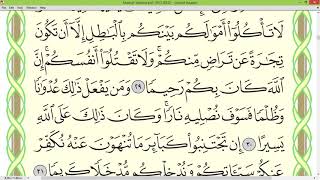 لَا تَأْكُلُوٓا۟ أَمْوَٰلَكُم بَيْنَكُم بِٱلْبَٰطِلِ إِلَّآ أَن تَكُونَ
تِجَٰرَةً عَن تَرَاضٍ مِّنكُمْ ۚ وَلَا تَقْتُلُوٓا۟ أَنفُسَكُمْ ۚ إِنَّ
ٱللَّهَ كَانَ بِكُمْ رَحِيمًا ٢٩ وَمَن يَفْعَلْ ذَٰلِكَ عُدْوَٰنًا
وَظُلْمًا فَسَوْفَ نُصْلِيهِ نَارًا ۚ وَكَانَ ذَٰلِكَ عَلَى ٱللَّهِ
يَسِيرًا ٣٠ إِن تَجْتَنِبُوا۟ كَبَآئِرَ مَا تُنْهَوْنَ عَنْهُ نُكَفِّرْ
عَنكُمْ سَيِّـَٔاتِكُمْ وَنُدْخِلْكُم مُّدْخَلًا كَرِيمًا ٣١